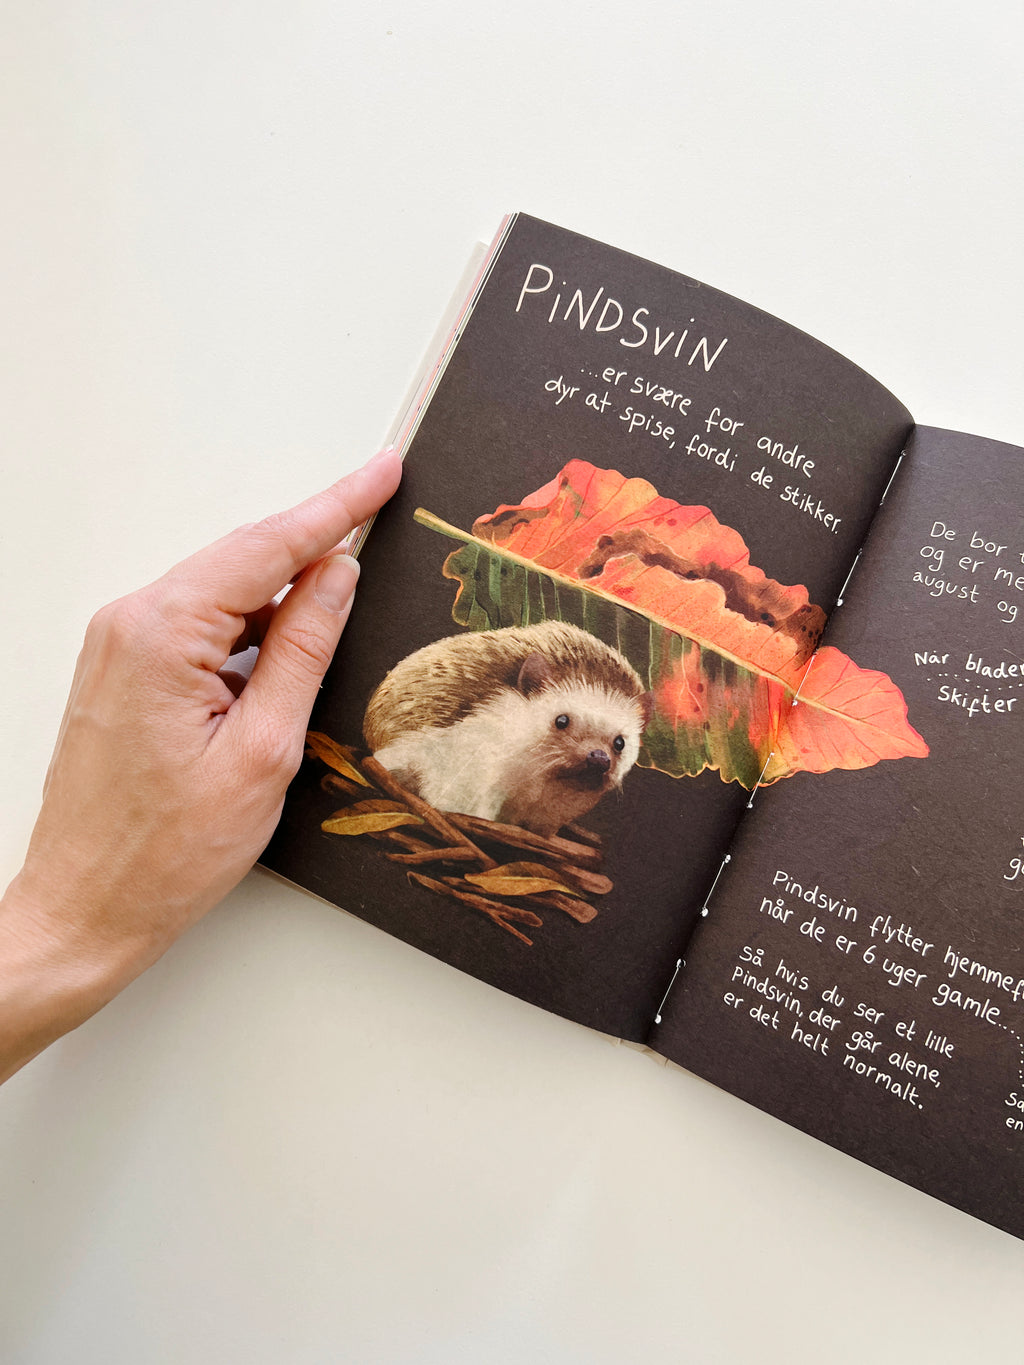 PiNDSViN
...er svære for andre
dyr at spise, fordi de stikker.
De bor
og er
august og
Når
Skifter
Pindsvin flytter
når de er 6 uger gamle...
Så hvis du ser et lille
Pindsvin, der går alene,
er det helt normalt.
en